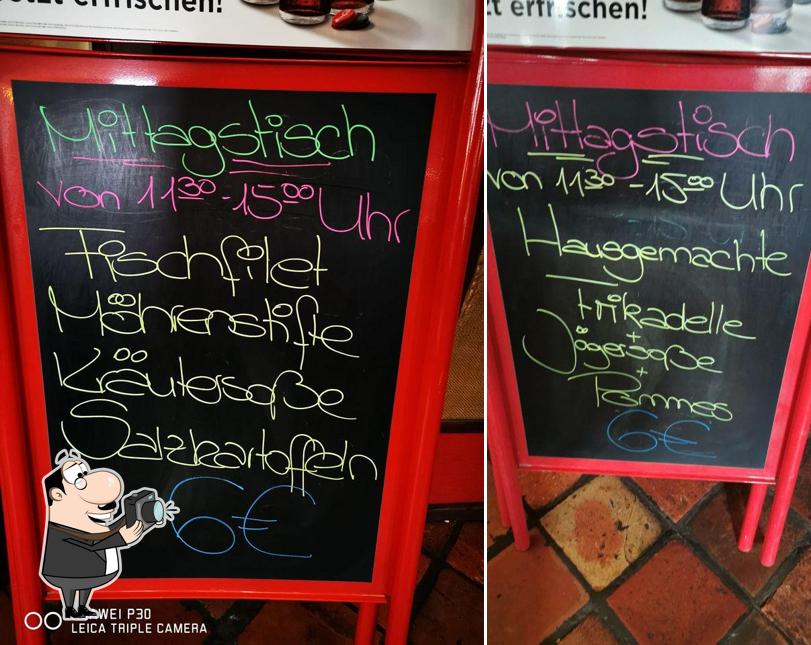 etzt erfrischen!
Mittagstisch
von 11 30 - 15 00 Uhr
Fischfilet
Möhrenstifte
Kräutersoße
Salzkartoffeln
6€
WEI P30
LEICA TRIPLE CAMERA
zt erfrischen!
Mittagstisch
von 11 30 - 15 00 Uhr
Hausgemachte
Frikadelle
+
Jägersoße
+
Pommes
6€